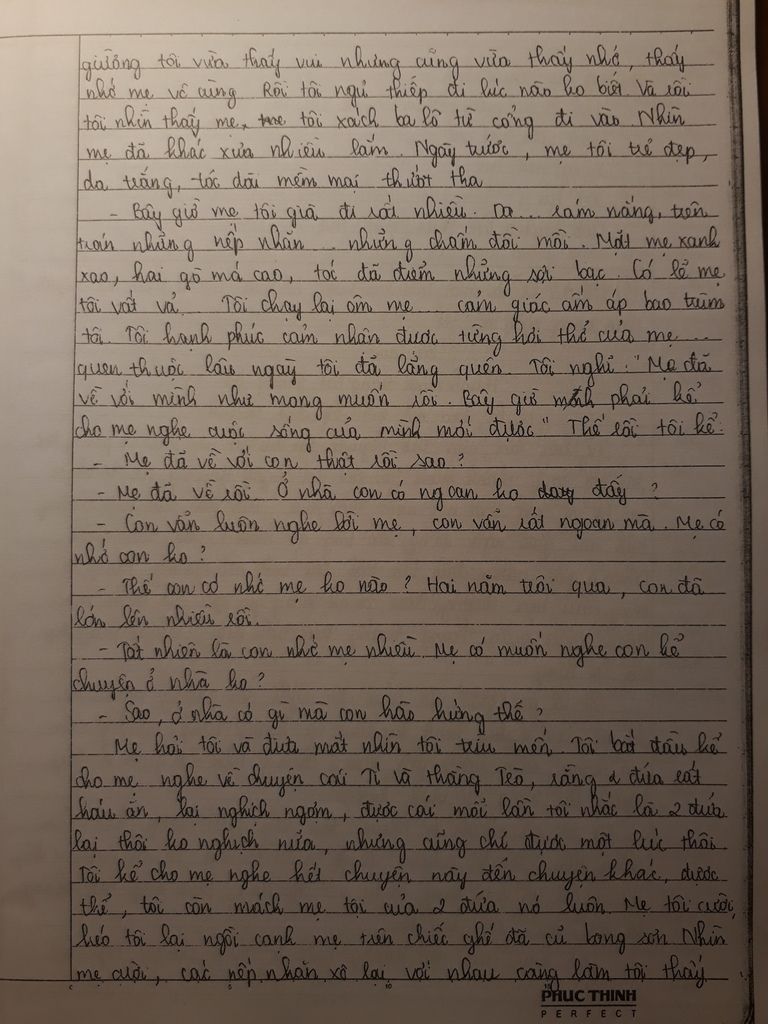 giường tôi vừa thấy vui nhưng cũng vừa thấy nhớ, thấy
nhớ mẹ vô cùng. Rồi tôi ngủ thiếp đi lúc nào ko biết. Và rồi
tôi nhìn thấy mẹ, tôi xách ba lô từ cổng đi vào. Nhìn
mẹ đã khác xưa nhiều lắm. Ngày trước, mẹ tôi trẻ đẹp,
da trắng, tóc dài mềm mại thướt tha
- Bây giờ mẹ tôi già đi rất nhiều. Da... rám nắng, trên
trán những nếp nhăn... những chấm đồi mồi. Mặt mẹ xanh
xao, hai gò má cao, tóc đã điểm những sợi bạc. Có lẽ mẹ
tôi vất vả... Tôi chạy lại ôm mẹ... cảm giác ấm áp bao trùm
tôi. Tôi hạnh phúc cảm nhận được từng hơi thở của mẹ...
quen thuộc lâu ngày tôi đã lãng quên. Tôi nghĩ: "Mẹ đã
về với mình như mong muốn rồi. Bây giờ mình phải kể
cho mẹ nghe cuộc sống của mình mới được" Thế rồi tôi kể:
- Mẹ đã về với con thật rồi sao?
- Mẹ đã về rồi. Ở nhà con có ngoan ko đấy?
- Con vẫn luôn nghe lời mẹ, con vẫn rất ngoan mà. Mẹ có
nhớ con ko?
- Thế con có nhớ mẹ ko nào? Hai năm trôi qua, con đã
lớn lên nhiều rồi.
- Tất nhiên là con nhớ mẹ nhiều. Mẹ có muốn nghe con kể
chuyện ở nhà ko?
- Sao, ở nhà có gì mà con hào hứng thế?
Mẹ hỏi tôi và đưa mắt nhìn tôi trìu mến. Tôi bắt đầu kể
cho mẹ nghe về chuyện cái Tí và thằng Tèo, rằng 2 đứa rất
háu ăn, lại nghịch ngợm, được cái mỗi lần tôi nhắc là 2 đứa
lại thôi ko nghịch nữa, nhưng cũng chỉ được một lúc thôi.
Tôi kể cho mẹ nghe hết chuyện này đến chuyện khác, được
thể, tôi còn mách mẹ tội của 2 đứa nó luôn. Mẹ tôi cười,
kéo tôi lại ngồi cạnh mẹ trên chiếc ghế đã cũ bong sơn. Nhìn
mẹ cười, các nếp nhăn xô lại với nhau càng làm tôi thấy
PHUC THINH
PERFECT